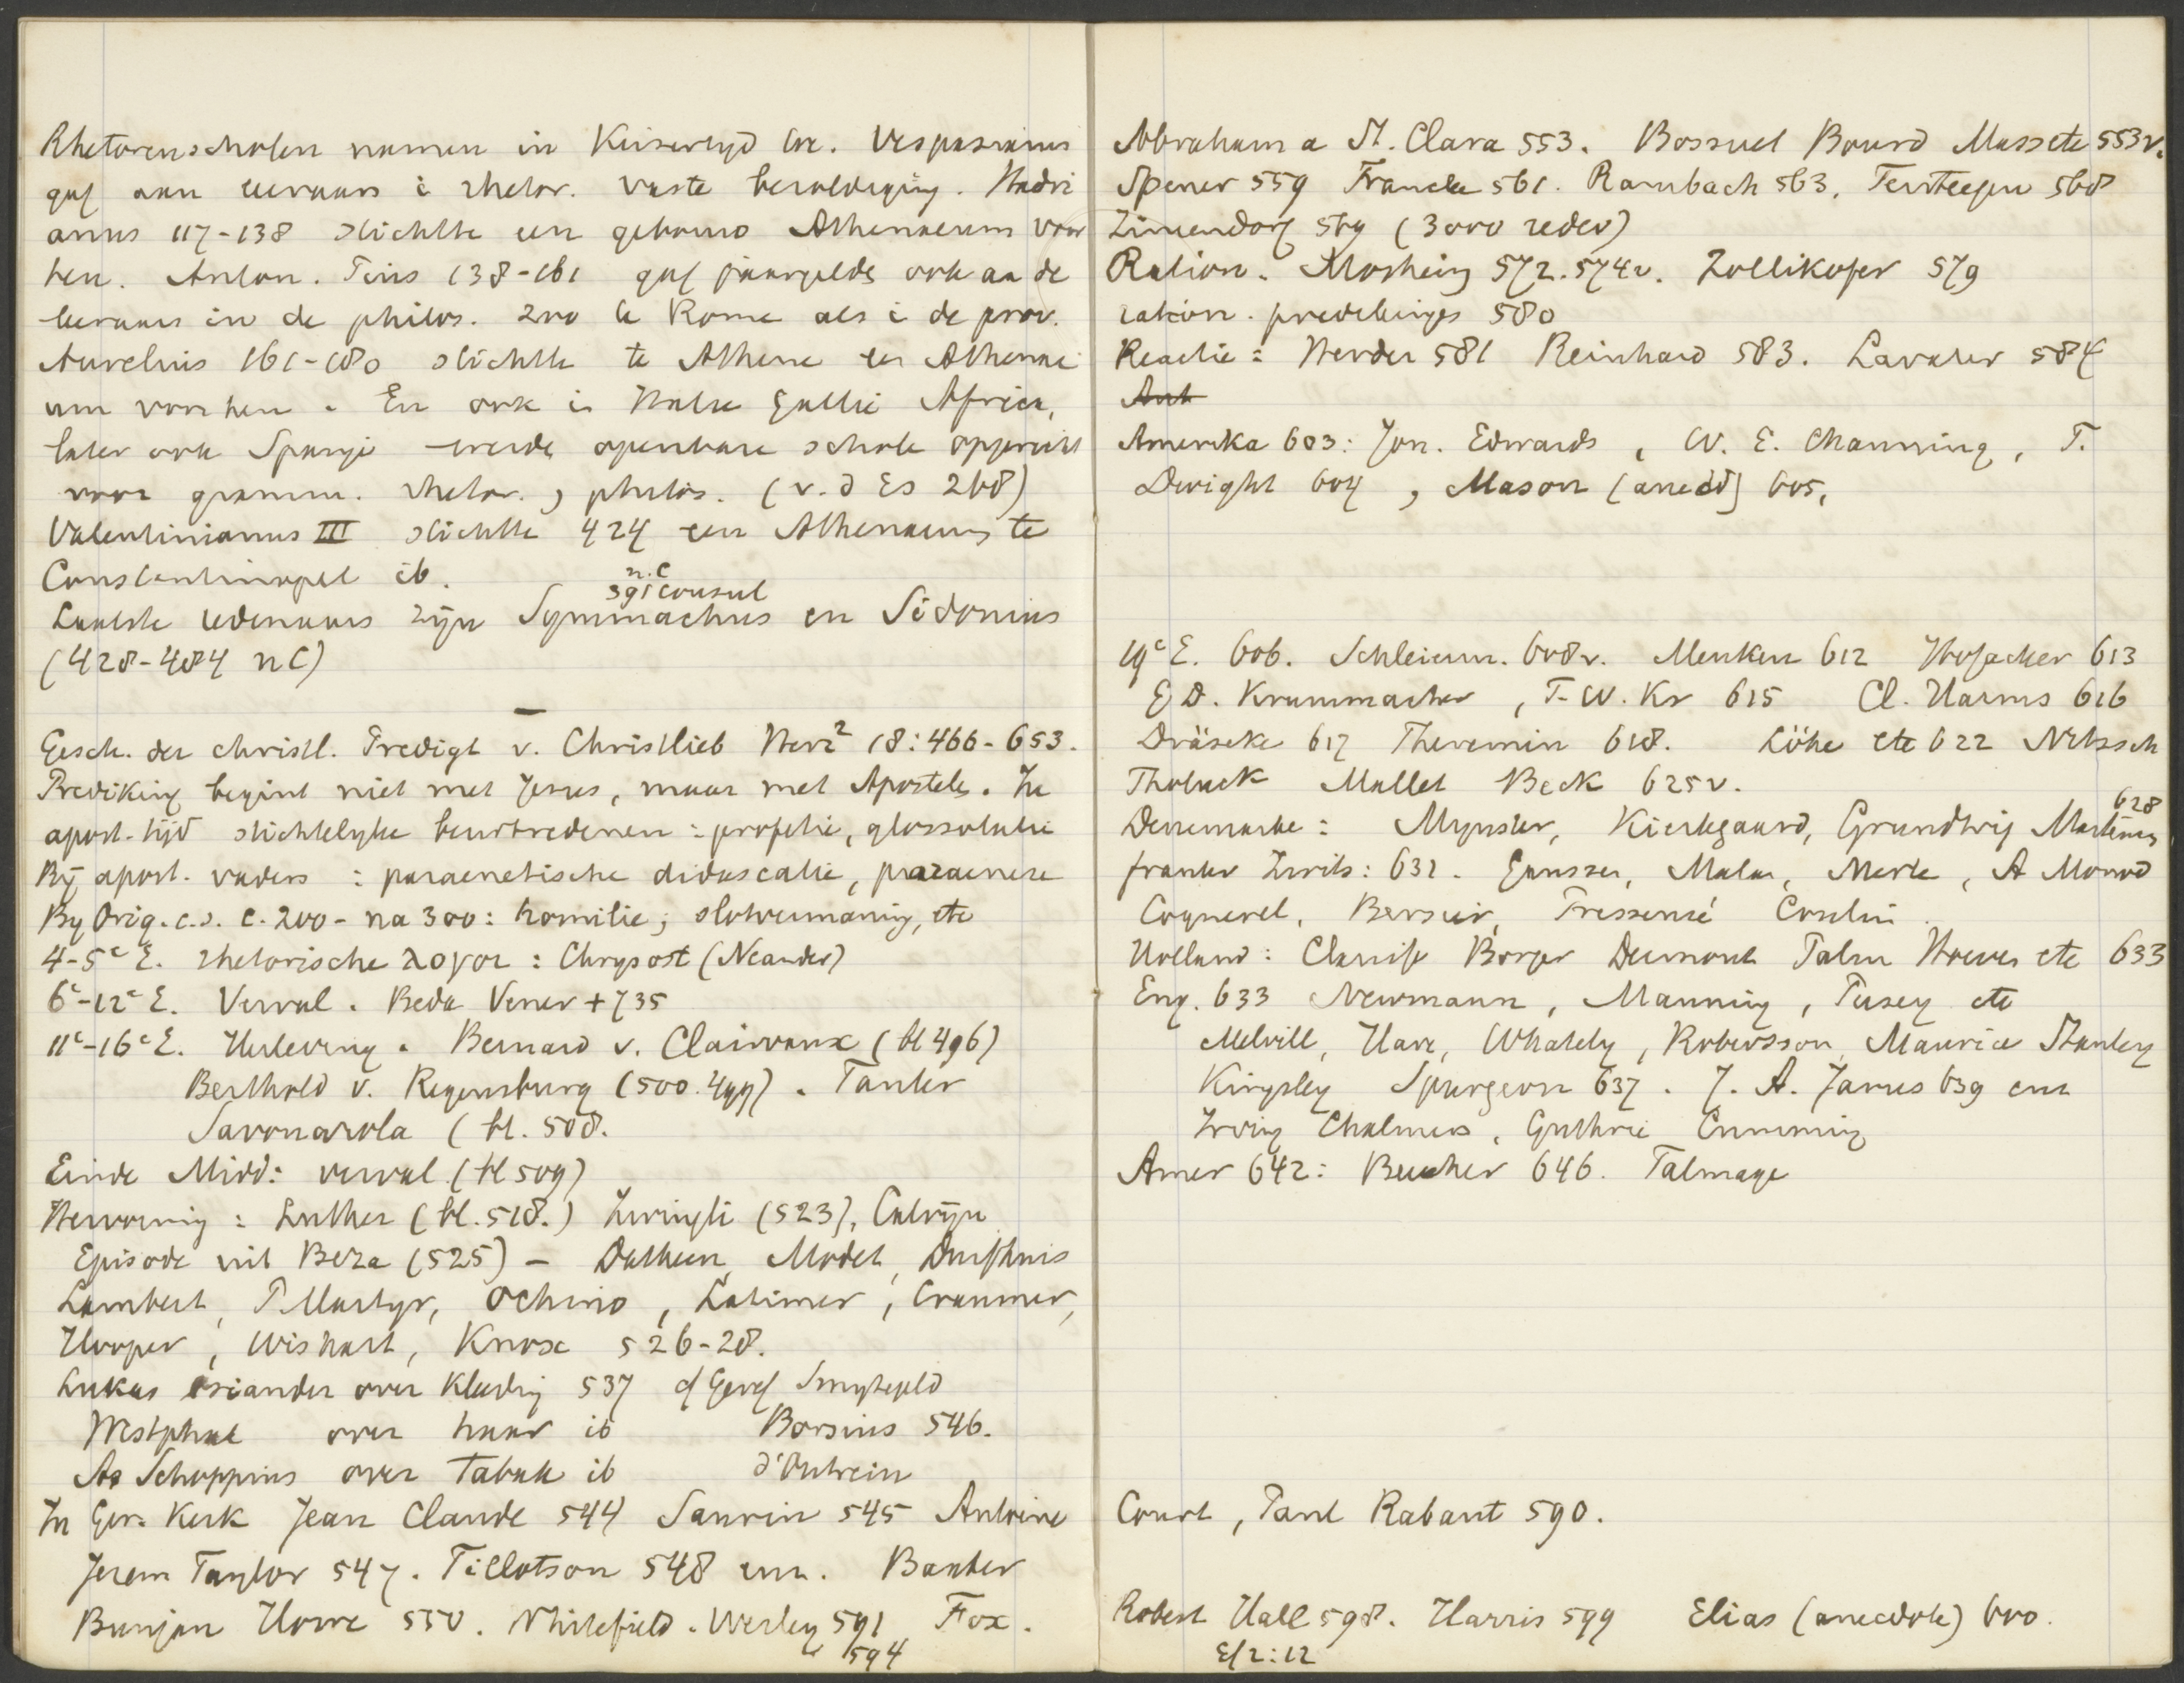 Rhetorenscholen namen in Keisertyd toe. Vespasianus
gaf aan leeraars i rhetor. vaste bezoldiging. Hadri
anus 117-138 stichtte een gebouw Athenaeum voor
hen. Anton. Pius 138-161 gaf jaargelds ook aan de
leeraars in de philos. zoo te Rome als i de prov.
Aurelius 161-180 stichtte te Athene een Athenae
um voor hen. En ook in Italie Gallie Africa,
later ook Spanje werde openbare schole opgericht
voor gramm. rhetor. , philos. (v. d Es 268)
Valentinianus III stichtte 424 een Athenaeum te
Constantinopel ib.
n.C
391 consul
Laatste redenaars zijn Symmachus en Sidonius
(428-484 n C)
—
Gesch. der christl. Predigt v. Christlieb Herz² 18: 466-653.
Prediking begint niet met Jezus, maar met Apostels. In
apost. tijd stichtelyke beurtredenen : profetie, glossolalie
Bij apost. vaders : paraenetische didascalie, paraenese
By Orig. c.s. c. 200 - na 300 : homilie; slotvermaning, etc
4-5e E. rhetorische λογοι : Chrysost (Neander)
6e-12e E. Verval. Beda Vener + 735
11e-16e E. Herleving. Bernard v. Clairvaux (bl 496)
Berthold v. Regensburg (500. 499). Tauler
Savonarola (bl. 508.
Einde Midd: verval (bl 509)
Hervorming : Luther (bl. 518.) Zwingli (523), Calvijn
Episode uit Beza (525) - Datheen, Modet, Duifhuis
Lambert, P. Martyr, Ochino, Latimer, Cranmer,
Hooper, Wishart, Knox 526-28.
Lukas Osiander over Kleeding 537 cf Geref Smytegeld
Westphal over haar ib Borsius 546.
As Schuppius over Tabak ib d'Outrein
In Ger. Kerk Jean Claude 544 Saurin 545 Antoine
Jerem Taylor 547. Tillotson 548 enz. Baxter
Bunjan Howe 550. Whitefield. Wesley 591 Fox.
594
Abraham a St. Clara 553. Bossuet Bourd Mass etc 553v.
Spener 559 Francke 561. Rambach 563. Tersteegen 568
Zinzendorf 569 (3000 reden)
Ration. Mosheim 572. 574v. Zollikofer 579
ration. predikinges 580
Reactie : Herder 581 Reinhard 583. Lavater 584
Amerika 603: Jon. Edwards, W. E. Channing, T.
Dwight 604, Mason (anecd) 605,
19e E. 606. Schleierm. 608v. Menken 612 Hofacker 613
G. D. Krummacher, F. W. Kr 615 Cl. Harms 616
Dräseke 617 Theremin 618. Löhe etc 622 Nitzsch
Tholuck Mallet Beck 625v.
628
Denemarke : Mynster, Kierkegaard, Grundtvig Martensen,
frankr Zwits : 631. Gaussen, Malan, Merle, A Monod
Coquerel, Bersier, Pressensé Coulin.
Holland : Clarisse Borger Dermout Palm Hoeven etc 633
Eng. 633 Newmann, Manning, Pusey etc
Melvill, Hare, Whately, Robertson, Maurice Stanley
Kingsley Spurgeon 637. J. A. James 639 enz
Irving Chalmers, Guthrie Cumming
Amer 642: Beecher 646. Talmage
Court, Paul Rabaut 590.
Robert Hall 598. Harris 599 Elias (anecdote) 600.
Ef 2:12